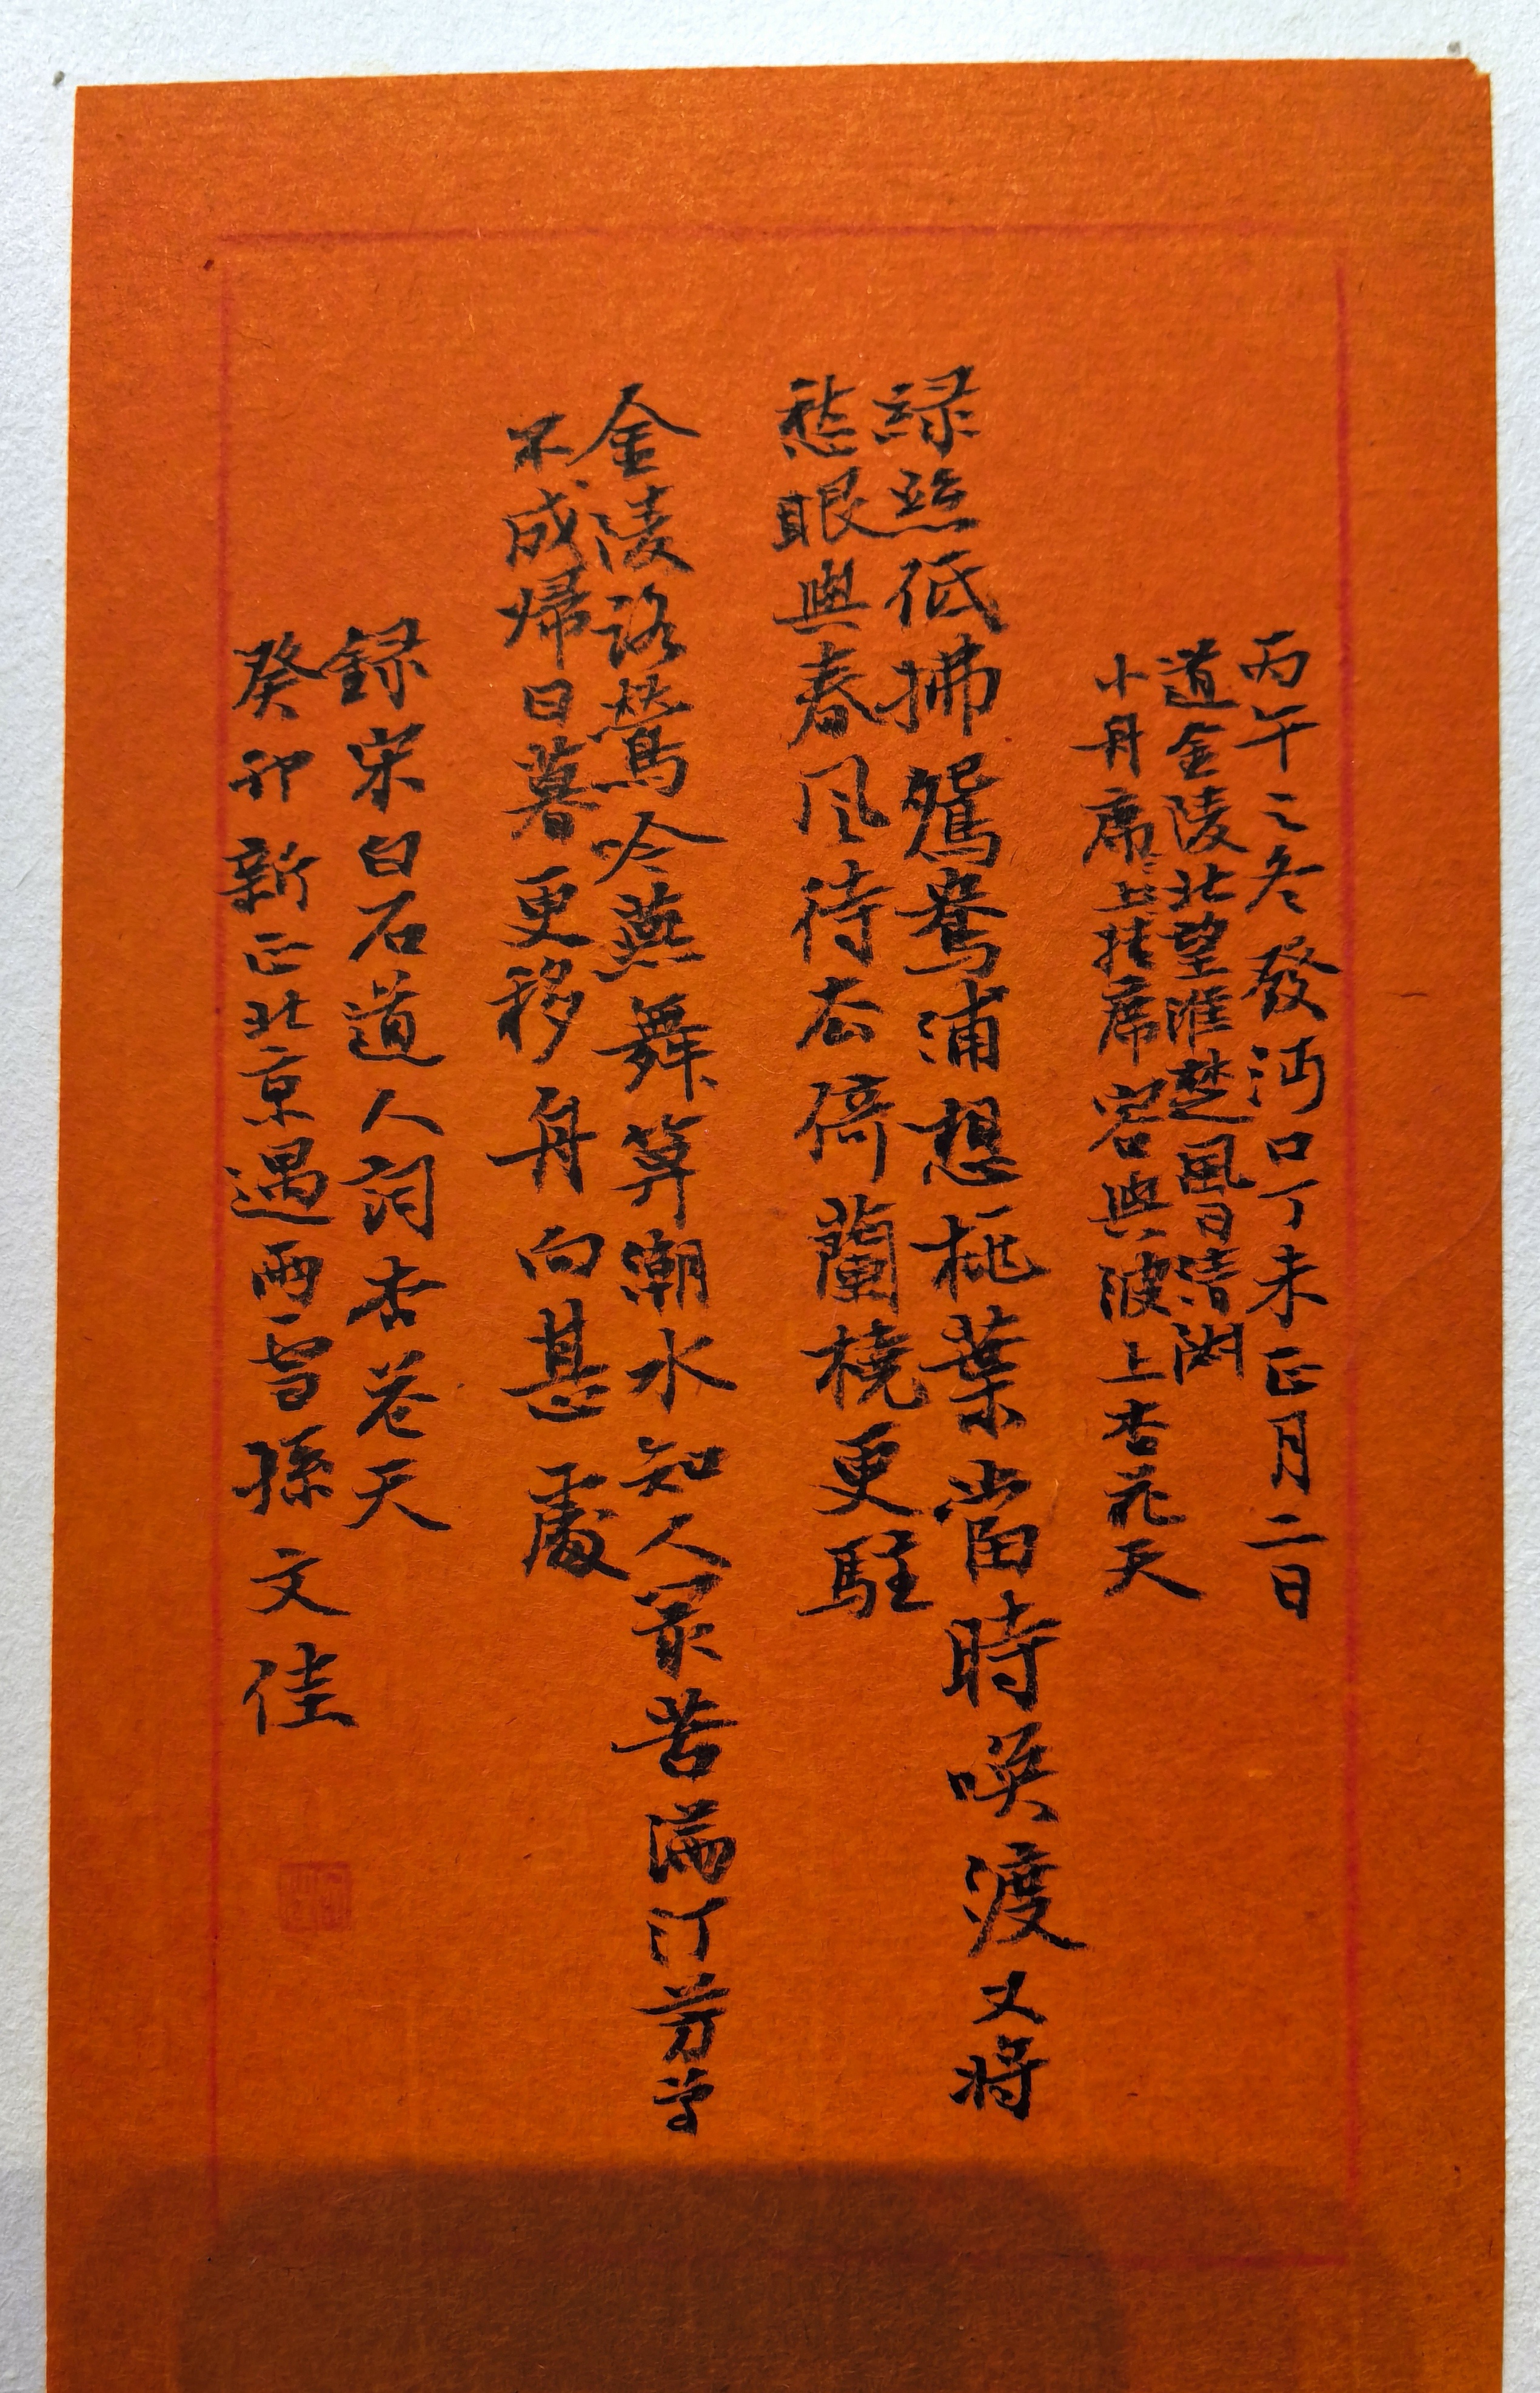 丙午之冬發沔口丁未正月二日
道金陵北望淮楚風日清淑
小舟席上挂席容與波上杏花天
綠絲低拂鴛鴦浦想桃葉當時喚渡又將
愁眼與春風待去倚蘭橈更駐
金陵路鶯吟燕舞算潮水知人最苦滿汀芳草
不成歸日暮更移舟向甚處
錄宋白石道人詞杏花天
癸卯新正北京遇雨雪孫文佳